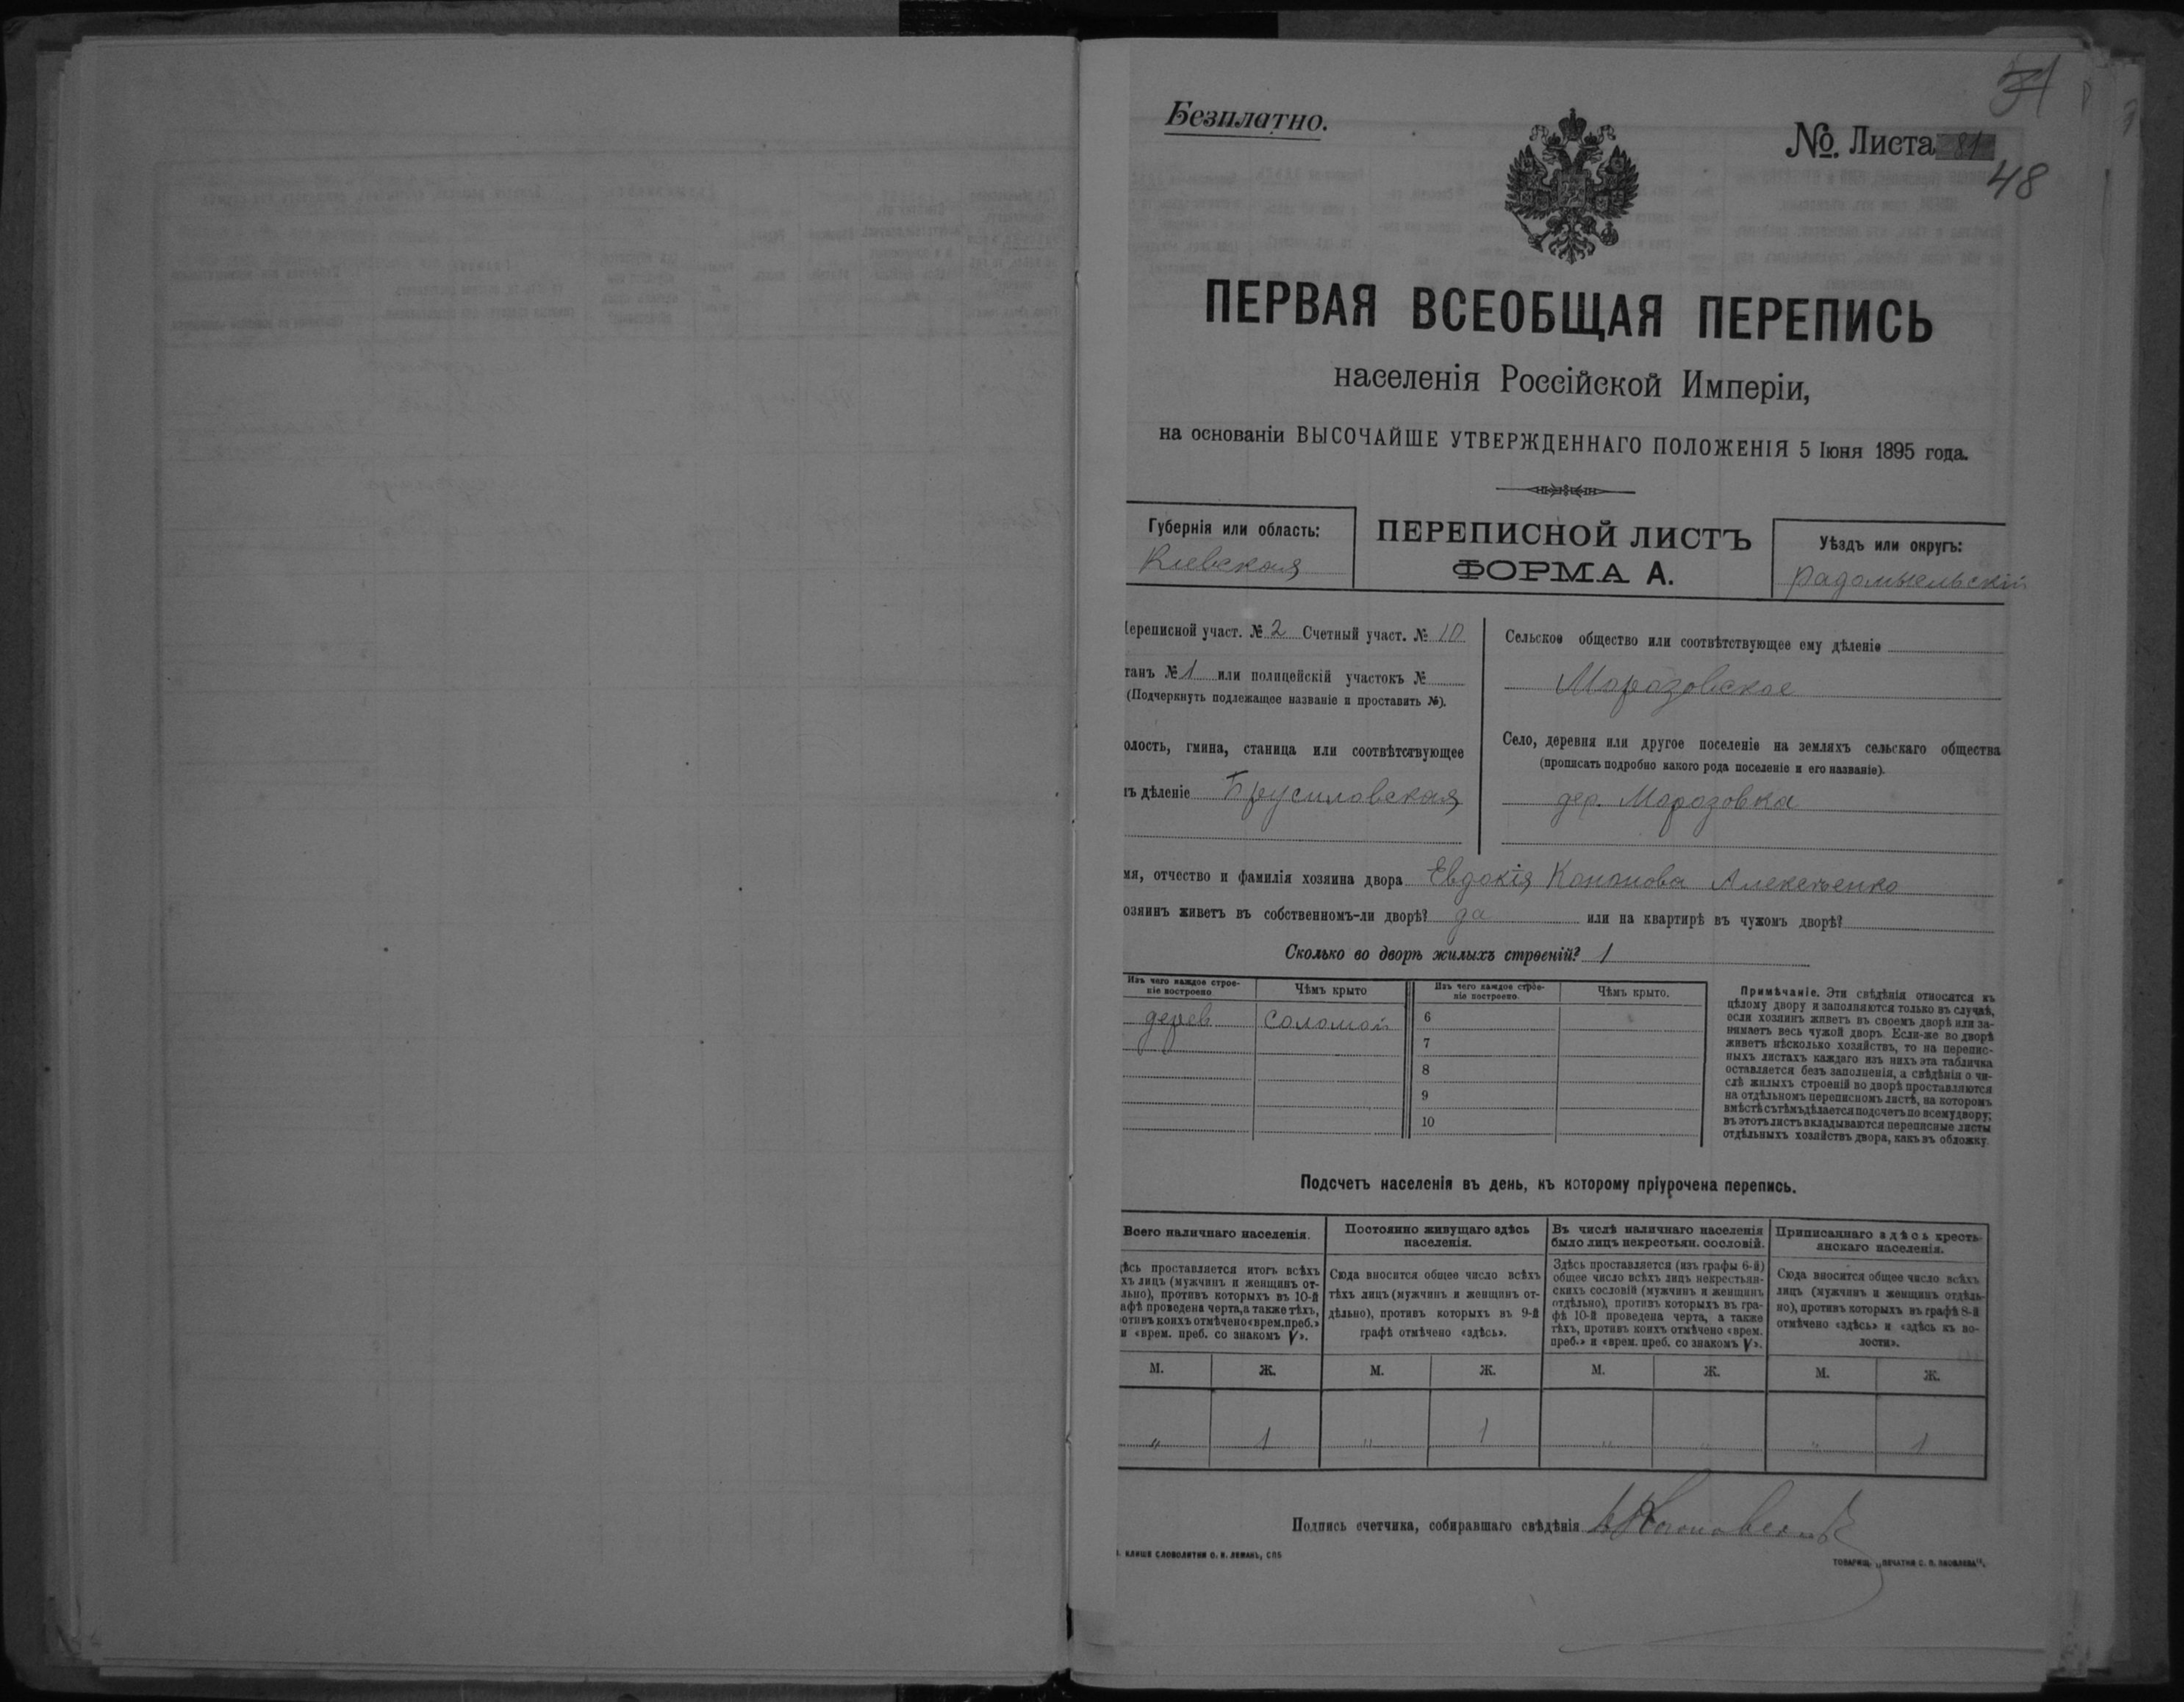 Безплатно.
№ Листа 81
48
ПЕРВАЯ ВСЕОБЩАЯ ПЕРЕПИСЬ
населенія Россійской Имперіи,
на основаніи ВЫСОЧАЙШЕ УТВЕРЖДЕННАГО ПОЛОЖЕНІЯ 5 Іюня 1895 года.
Губернія или область:
Кіевская
ПЕРЕПИСНОЙ ЛИСТЪ
ФОРМА А.
Уѣздъ или округъ:
Радомысльскій
Переписной участ. № 2 Счетный участ. № 10
танъ № 1 или полицейскій участокъ №
(Подчеркнуть подлежащее названіе и проставить №).
олость, гмина, станица или соотвѣтствующее
ъ дѣленіе Брусиловская
Сельское общество или соотвѣтствующее ему дѣленіе
Морозовское
Село, деревня или другое поселеніе на земляхъ сельскаго общества
(прописать подробно какого рода поселеніе и его названіе).
дер. Морозовка
мя, отчество и фамилія хозяина двора Евдокія Кононова Алексѣенко
озяинъ живетъ въ собственномъ-ли дворѣ? да или на квартирѣ въ чужомъ дворѣ?
Сколько во дворѣ жилыхъ строеній? 1
Изъ чего каждое строе-
ніе построено
Чѣмъ крыто
Изъ чего каждое строе-
ніе построено.
Чѣмъ крыто.
дерев соломой
6
7
8
9
10
Примѣчаніе. Эти свѣдѣнія относятся къ
цѣлому двору и заполняются только въ случаѣ,
если хозяинъ живетъ въ своемъ дворѣ или за-
нимаетъ весь чужой дворъ. Если-же во дворѣ
живетъ нѣсколько хозяйствъ, то на перепис-
ныхъ листахъ каждаго изъ нихъ эта табличка
оставляется безъ заполненія, а свѣдѣнія о чи-
слѣ жилыхъ строеній во дворѣ проставляются
на отдѣльномъ переписномъ листѣ, на которомъ
вмѣстѣ съ тѣмъ дѣлается подсчетъ по всему двору;
въ этотъ листъ вкладываются переписные листы
отдѣльныхъ хозяйствъ двора, какъ въ обложку.
Подсчетъ населенія въ день, къ которому пріурочена перепись.
Всего наличнаго населенія.
ѣсь проставляется итогъ всѣхъ
хъ лицъ (мужчинъ и женщинъ от-
льно), противъ которыхъ въ 10-й
афѣ проведена черта, а также тѣхъ,
отивъ коихъ отмѣчено «врем. преб.»
и «врем. преб. со знакомъ V».
Постоянно живущаго здѣсь
населенія.
Сюда вносится общее число всѣхъ
тѣхъ лицъ (мужчинъ и женщинъ от-
дѣльно), противъ которыхъ въ 9-й
графѣ отмѣчено «здѣсь».
Въ числѣ наличнаго населенія
было лицъ некрестьян. сословій.
Здѣсь проставляется (изъ графы 6-й)
общее число всѣхъ лицъ некрестьян-
скихъ сословій (мужчинъ и женщинъ
отдѣльно), противъ которыхъ въ гра-
фѣ 10-й проведена черта, а также
тѣхъ, противъ коихъ отмѣчено «врем.
преб.» и «врем. преб. со знакомъ V».
Приписаннаго здѣсь кресть-
янскаго населенія.
Сюда вносится общее число всѣхъ
лицъ (мужчинъ и женщинъ отдѣль-
но), противъ которыхъ въ графѣ 8-й
отмѣчено «здѣсь» и «здѣсь къ во-
лости».
М. Ж. М. Ж. М. Ж. М. Ж.
" 1 " 1 " " " 1
Подпись счетчика, собиравшаго свѣдѣнія
КЛИШЕ СЛОВОЛИТНИ О. И. ЛЕМАНЪ, СПБ
ТОВАРИЩ. „ПЕЧАТНЯ С. П. ЯКОВЛЕВА".